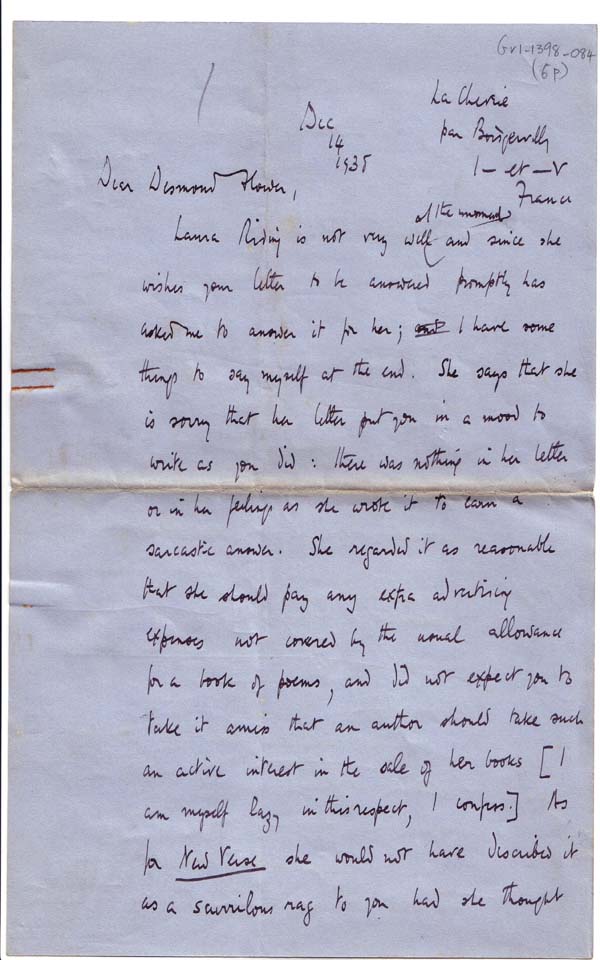 Gr1-1398-084
(5p)
La Chevrie
par Boisgervilly
I - et - V
France
Dec
14
1938
Dear Desmond Flower,
at the moment
Laura Riding is not very well and since she
wishes your letter to be answered promptly has
asked me to answer it for her; and I have some
things to say myself at the end. She says that she
is sorry that her letter put you in a mood to
write as you did: there was nothing in her letter
or in her feelings as she wrote it to earn a
sarcastic answer. She regarded it as reasonable
that she should pay any extra advertising
expenses not covered by the usual allowance
for a book of poems, and did not expect you to
take it amiss that an author should take such
an active interest in the sale of her books [I
am myself lazy in this respect, I confess.] As
for New Verse she would not have described it
as a scurrilous rag to you had she thought